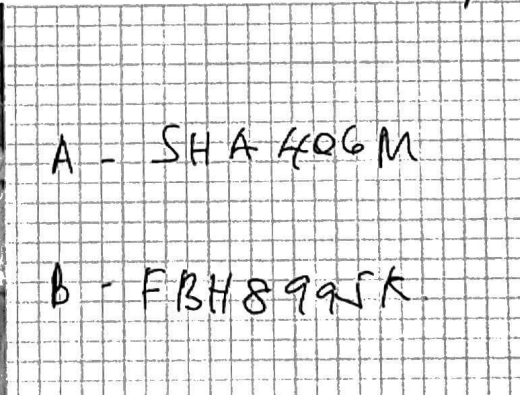 A - SHA 406 M
B - FBH 8995 K.